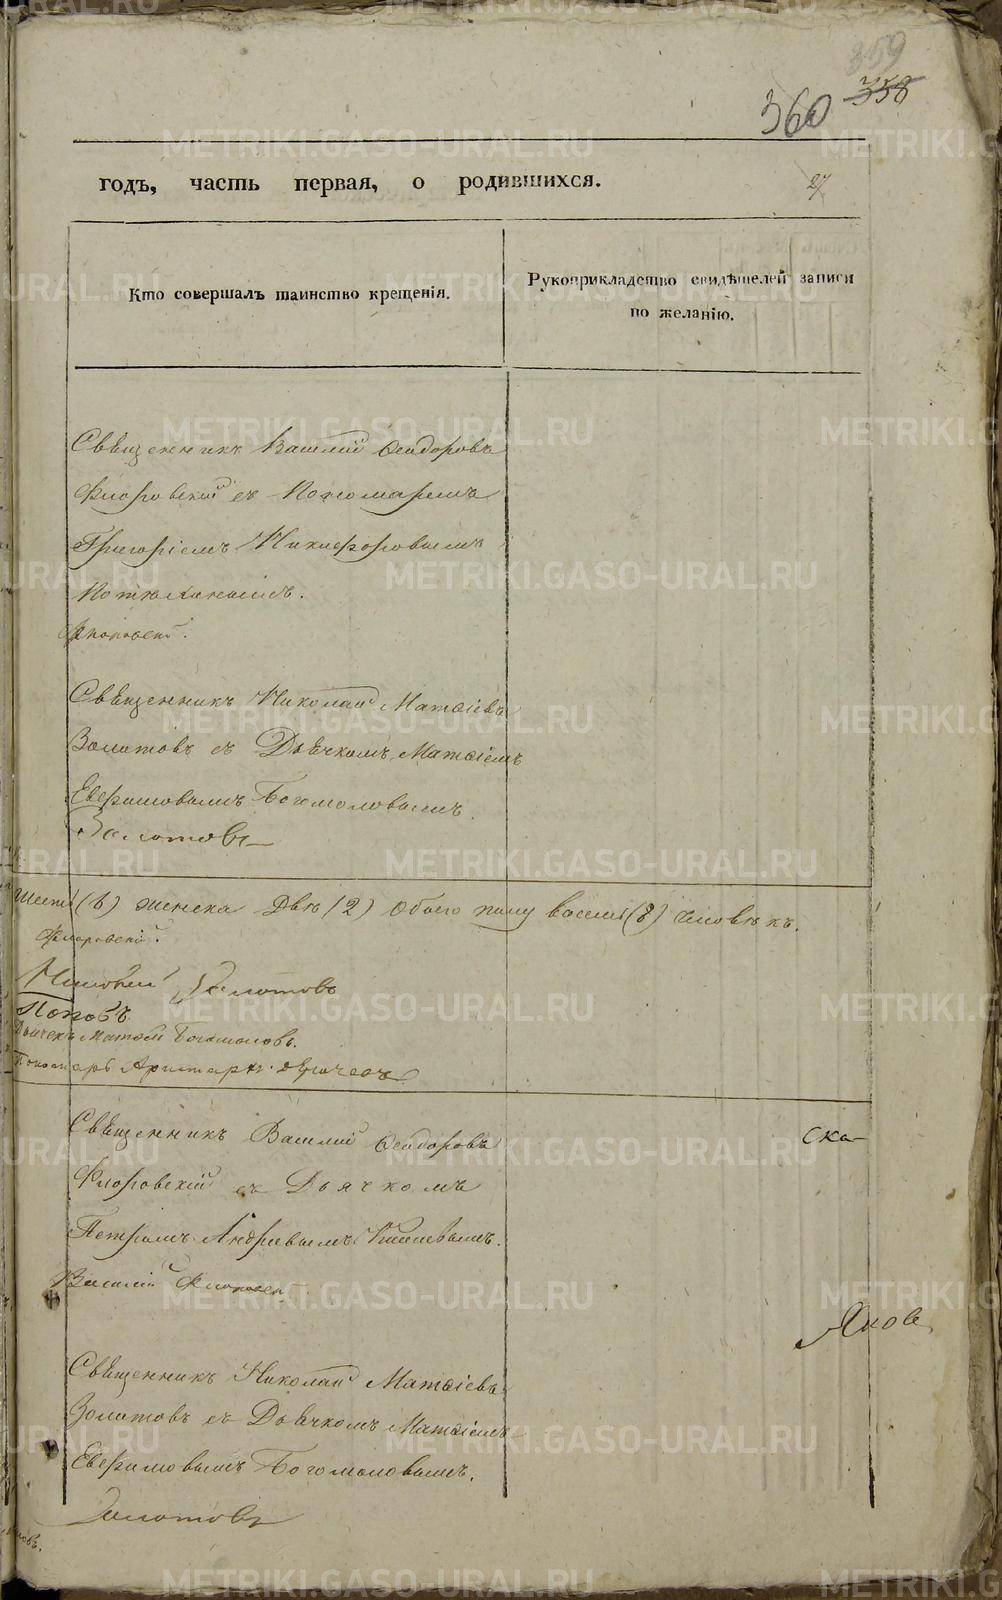 359
360 358
годъ, часть первая, о родившихся.
27
Кто совершалъ таинство крещенія.
Рукоприкладство свидѣтелей записи
по желанію.
Священникъ Василій Ѳеодоровъ
Флоровскій съ Пономаремъ
Григоріемъ Никифоровымъ
Флоровскій.
Священникъ Николай Матѳіевъ
Золотовъ съ Дьячкомъ Матѳіемъ
Евфимовымъ Богомоловымъ.
Золотовъ
(6) женска Двѣ (2) обоего полу восемь (8) человѣкъ.
Флоровскій.
Николай Золотовъ
Поповъ
Дьячекъ Матѳей Богомоловъ.
Пономарь Аристархъ
Священникъ Василій Ѳеодоровъ
Флоровскій съ Дьячкомъ
Петромъ Андреевымъ
Василій Флоровскій.
Священникъ Николай Матѳіевъ
Золотовъ съ Дьячкомъ Матѳіемъ
Евфимовымъ Богомоловымъ.
Золотовъ
ска-
METRIKI.GASO-URAL.RU